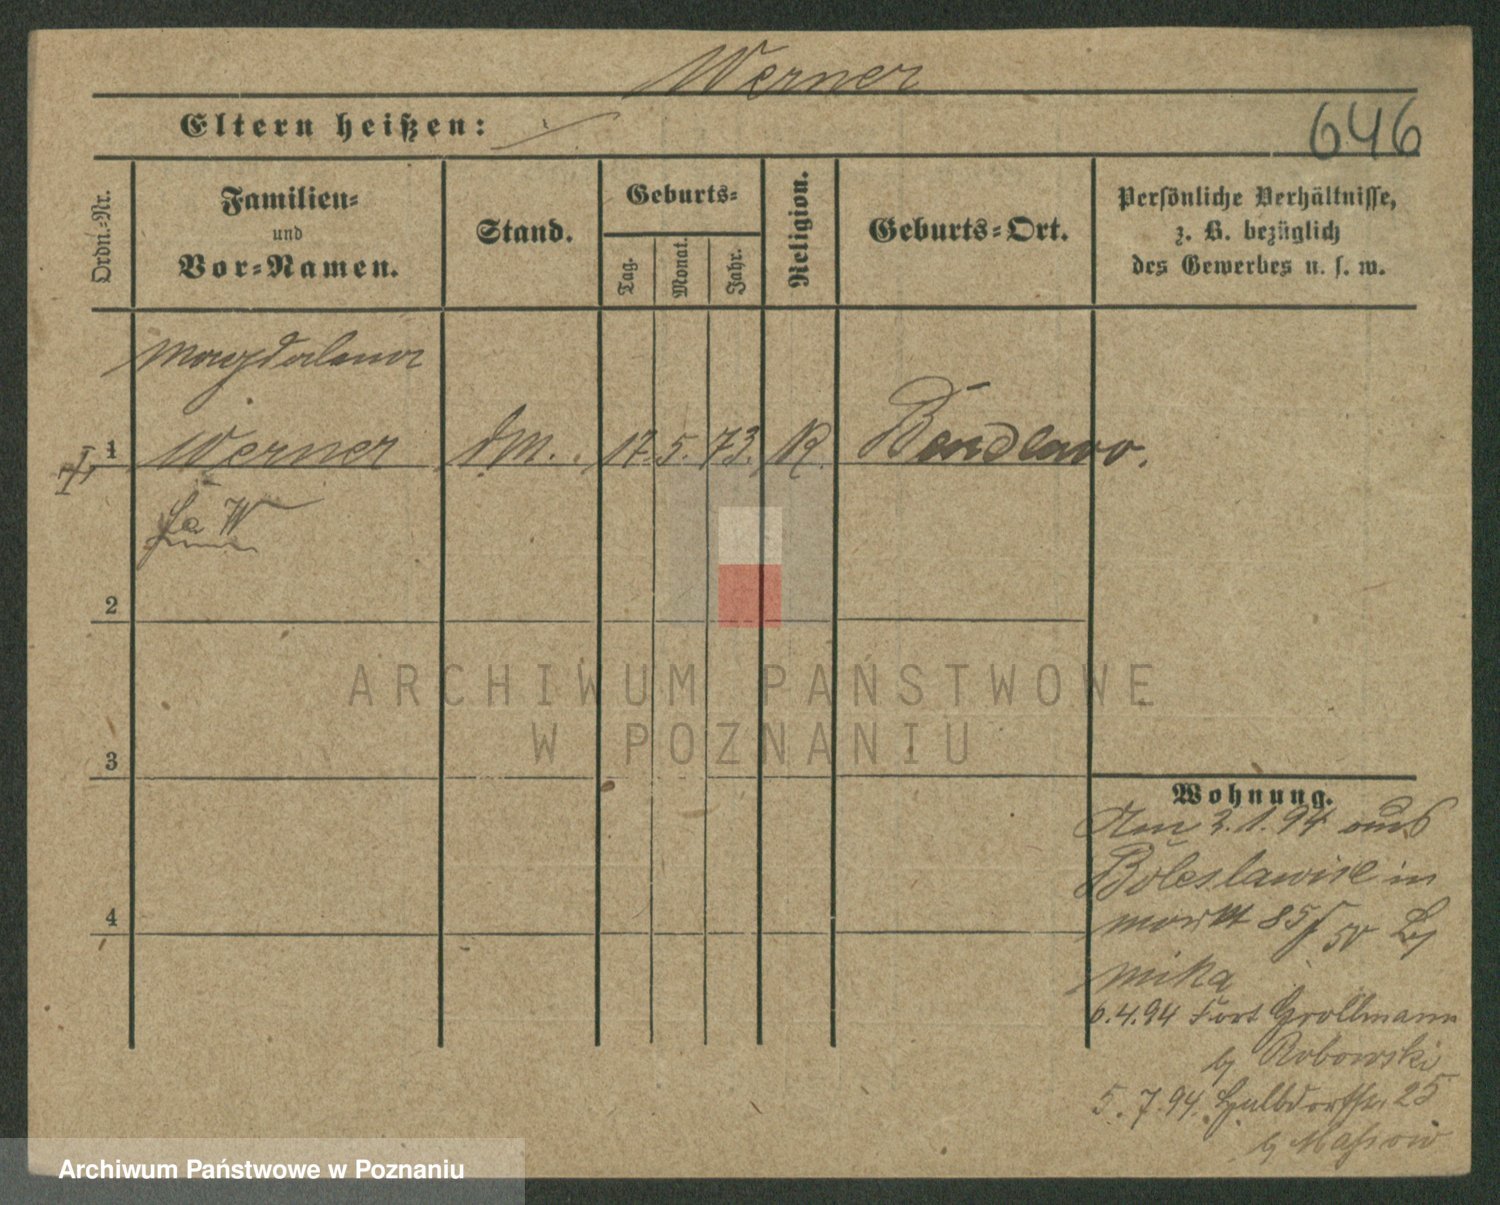 Werner
Eltern heißen:
646
Ordn.-Nr.
Familien-
und
Vor-Namen.
Stand.
Geburts-
Tag.
Monat.
Jahr.
Religion.
Geburts-Ort.
Persönliche Verhältnisse,
z. B. bezüglich
des Gewerbes u. s. w.
Magdalena
1 Werner DM. 17. 5. 73. K. Bendlewo.
2
3
4
ARCHIWUM PAŃSTWOWE
W POZNANIU
Wohnung.
Am 2.1.94 aus
Boleslawiec in
Markt 85 by
Mika
6.4.94 Fort Grollmann
by Robowski
5.7.94. Halbdorfstr. 25
by
Archiwum Państwowe w Poznaniu